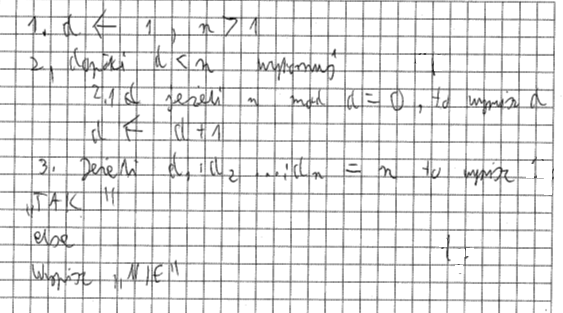 1. d ← 1, n > 1
2, dopóki d < n wykonuj
2.1 d jeżeli n mod d = 0, to wypisz d
d ← d + 1
3. Jeżeli d₁ : d₂ ... : dₙ = n to wypisz :
„TAK"
else
Wypisz „NIE"